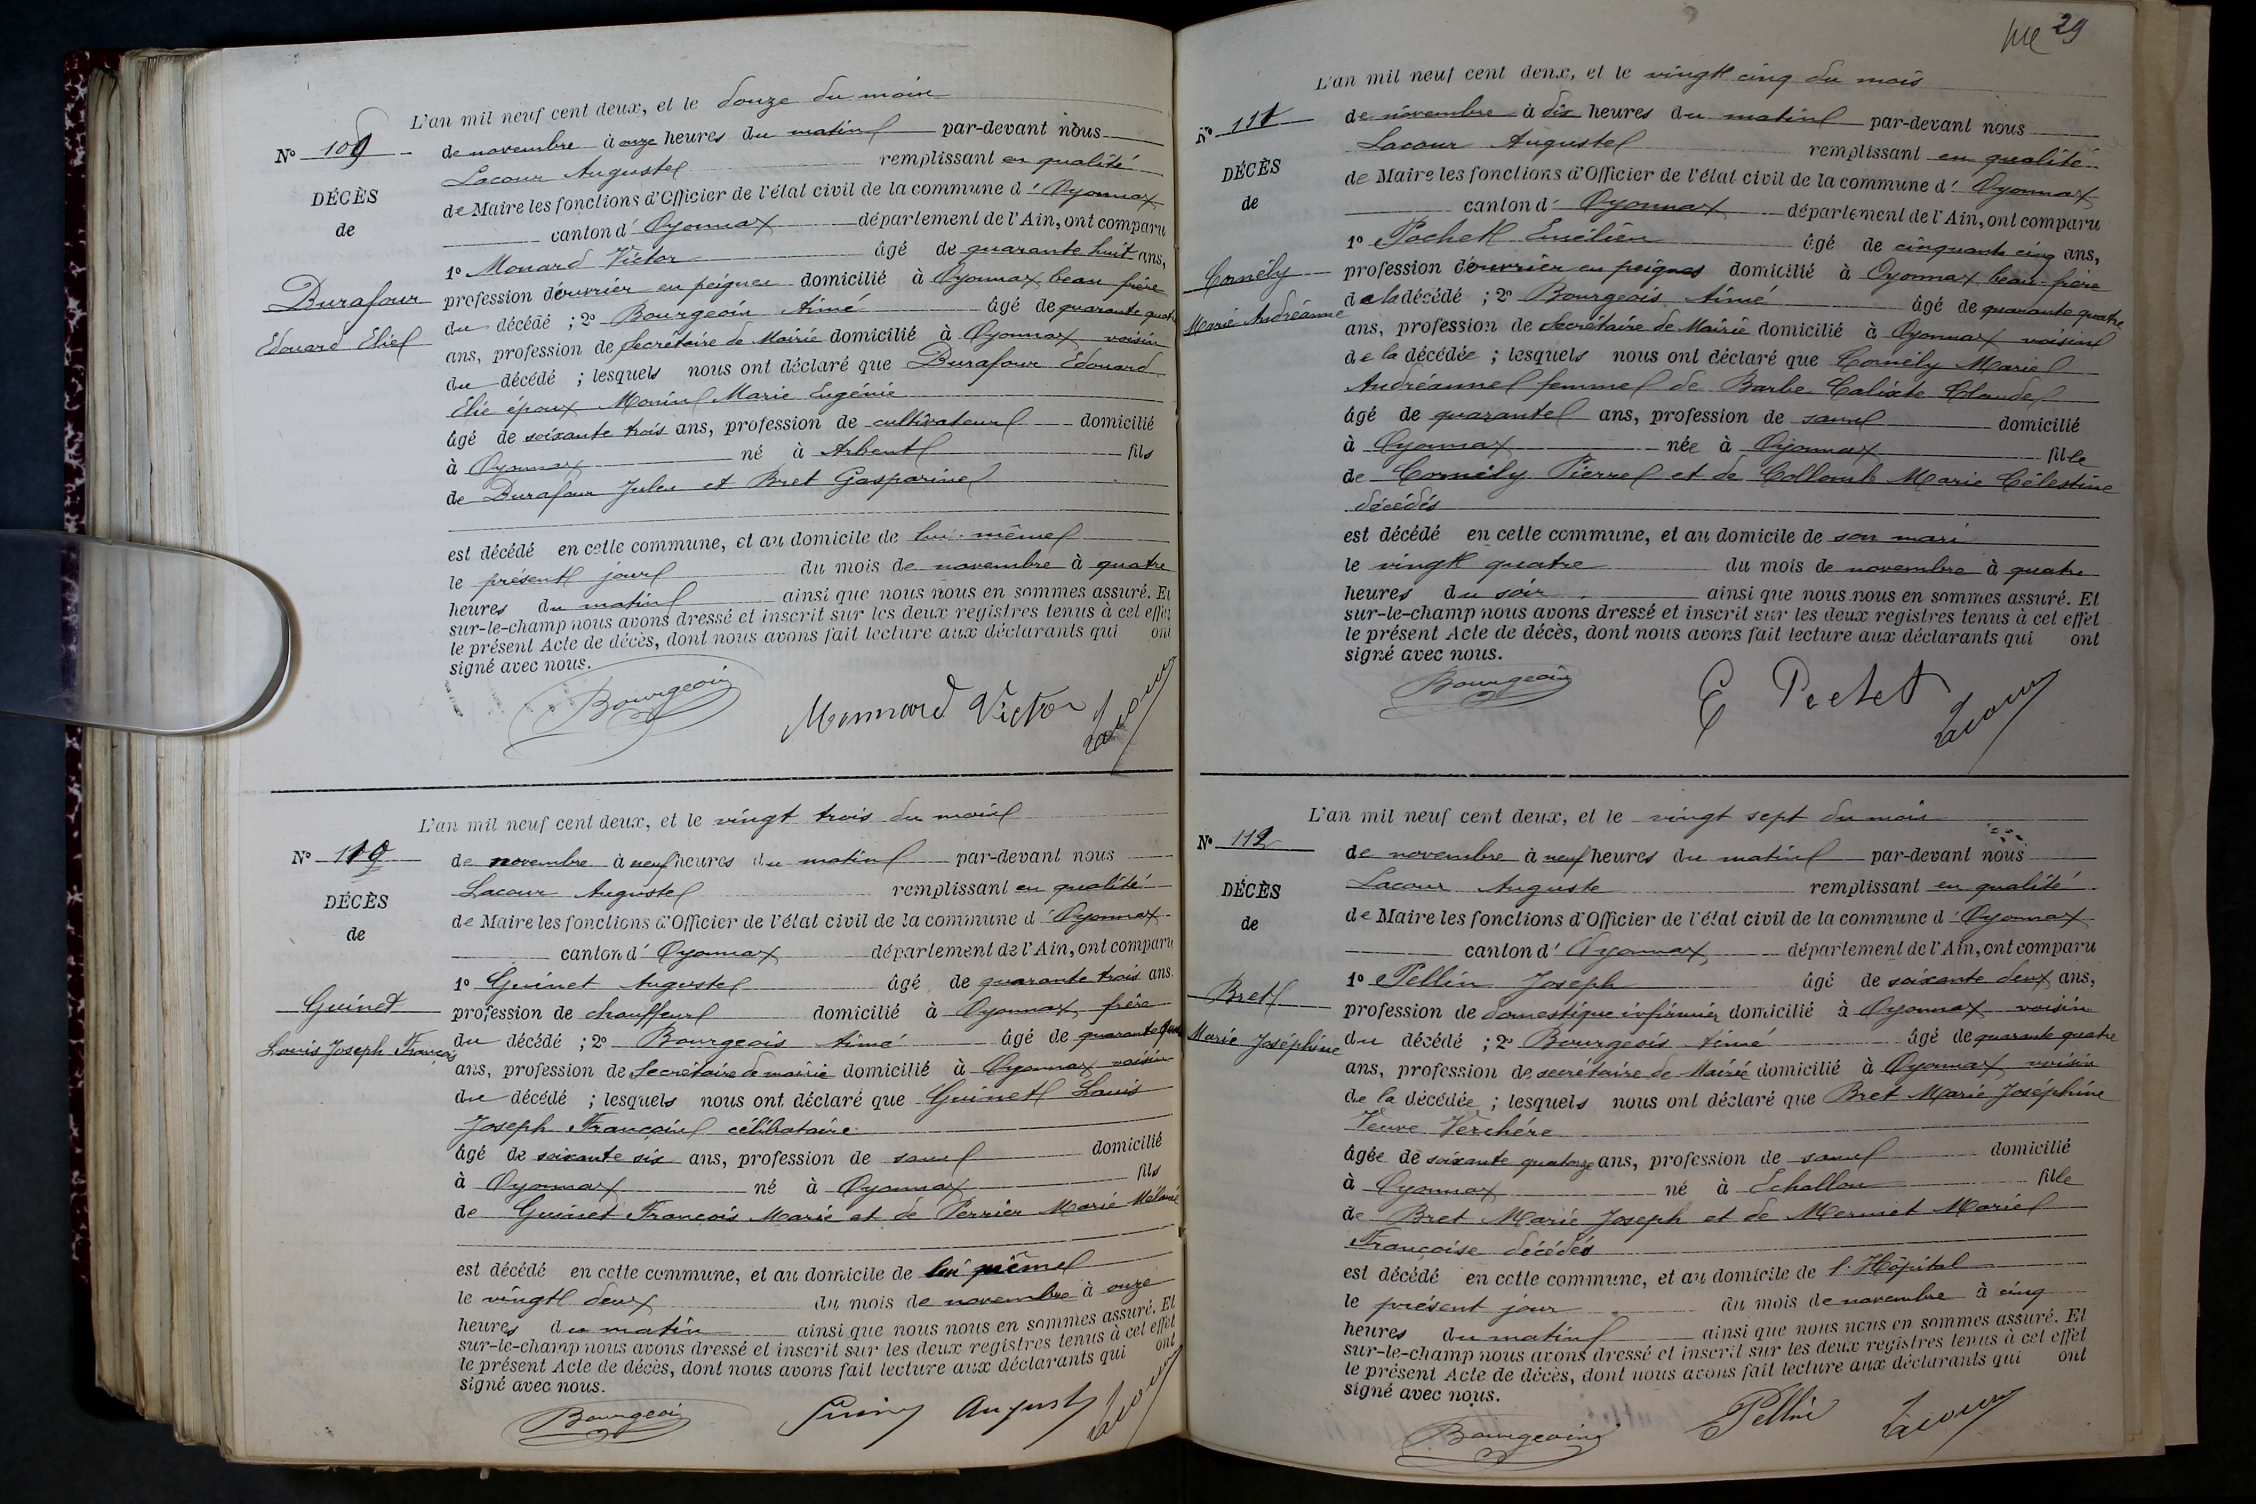 L'an mil neuf cent deux, et le douze du mois
N° 109
de novembre à onze heures du matin par-devant nous
Lacour Auguste remplissant en qualité
DÉCÈS
de Maire les fonctions d'Officier de l'état civil de la commune d'Oyonnax
de
canton d'Oyonnax département de l'Ain, ont comparu
1° Monard Victor âgé de quarante huit ans,
Durafour
Edouard Elie
profession d'ouvrier en peignes domicilié à Oyonnax beau frère
du décédé ; 2° Bourgeois Aimé âgé de quarante quatre
ans, profession de Secrétaire de Mairie domicilié à Oyonnax voisin
du décédé ; lesquels nous ont déclaré que Durafour Edouard
Élie époux Monin Marie Eugénie
âgé de soixante trois ans, profession de cultivateur domicilié
à Oyonnax né à Arbent fils
de Durafour Jules et Bret Gasparine
est décédé en cette commune, et au domicile de lui-même
le présent jour du mois de novembre à quatre
heures du matin ainsi que nous nous en sommes assuré. Et
sur-le-champ nous avons dressé et inscrit sur les deux registres tenus à cet effet
le présent Acte de décès, dont nous avons fait lecture aux déclarants qui ont
signé avec nous.
Bourgeois Monnard Victor Lacour
L'an mil neuf cent deux, et le vingt trois du mois
N° 110
de novembre à neuf heures du matin par-devant nous
Lacour Auguste remplissant en qualité
DÉCÈS
de Maire les fonctions d'Officier de l'état civil de la commune d'Oyonnax
de
canton d'Oyonnax département de l'Ain, ont comparu
1° Guinet Auguste âgé de quarante trois ans
Guinet
Louis Joseph François
profession de chauffeur domicilié à Oyonnax frère
du décédé ; 2° Bourgeois Aimé âgé de quarante quatre
ans, profession de Secrétaire de mairie domicilié à Oyonnax voisin
du décédé ; lesquels nous ont déclaré que Guinet Louis
Joseph François célibataire
âgé de soixante six ans, profession de sans domicilié
à Oyonnax né à Oyonnax fils
de Guinet François Marie et de Perrier Marie Mélanie
est décédé en cette commune, et au domicile de lui même
le vingt deux du mois de novembre à onze
heures du matin ainsi que nous nous en sommes assuré. Et
sur-le-champ nous avons dressé et inscrit sur les deux registres tenus à cet effet
le présent Acte de décès, dont nous avons fait lecture aux déclarants qui ont
signé avec nous.
Bourgeois Guinet August Lacour
29
L'an mil neuf cent deux, et le vingt cinq du mois
N° 111
de novembre à dix heures du matin par-devant nous
Lacour Auguste remplissant en qualité
DÉCÈS
de Maire les fonctions d'Officier de l'état civil de la commune d'Oyonnax
de
canton d'Oyonnax département de l'Ain, ont comparu
1° Pochet Emélien âgé de cinquante cinq ans,
Cornély
Marie Andréanne
profession d'ouvrier en peignes domicilié à Oyonnax beau-frère
de la décédé ; 2° Bourgeois Aimé âgé de quarante quatre
ans, profession de Secrétaire de Mairie domicilié à Oyonnax voisin
de la décédée ; lesquels nous ont déclaré que Cornély Marie
Andréanne femme de Barbe Calixte Claude
âgé de quarante ans, profession de sans domicilié
à Oyonnax née à Oyonnax fille
de Cornély Pierre et de Collomb Marie Célestine
décédés
est décédé en cette commune, et au domicile de son mari
le vingt quatre du mois de novembre à quatre
heures du soir ainsi que nous nous en sommes assuré. Et
sur-le-champ nous avons dressé et inscrit sur les deux registres tenus à cet effet
le présent Acte de décès, dont nous avons fait lecture aux déclarants qui ont
signé avec nous.
Bourgeois E Pochet Lacour
L'an mil neuf cent deux, et le vingt sept du mois
N° 112
de novembre à neuf heures du matin par-devant nous
Lacour Auguste remplissant en qualité
DÉCÈS
de Maire les fonctions d'Officier de l'état civil de la commune d'Oyonnax
de
canton d'Oyonnax, département de l'Ain, ont comparu
1° Pellin Joseph âgé de soixante deux ans,
Bret
Marie Joséphine
profession de domestique infirmier domicilié à Oyonnax voisin
du décédé ; 2° Bourgeois Aimé âgé de quarante quatre
ans, profession de secrétaire de Mairie domicilié à Oyonnax voisin
de la décédée ; lesquels nous ont déclaré que Bret Marie Joséphine
Veuve Verchére
âgée de soixante quatorze ans, profession de sans domicilié
à Oyonnax né à Echallon fille
de Bret Marie Joseph et de Mermet Marie
Françoise décédés
est décédé en cette commune, et au domicile de l'Hôpital
le présent jour du mois de novembre à cinq
heures du matin ainsi que nous nous en sommes assuré. Et
sur-le-champ nous avons dressé et inscrit sur les deux registres tenus à cet effet
le présent Acte de décès, dont nous avons fait lecture aux déclarants qui ont
signé avec nous.
Bourgeois Pellin Lacour